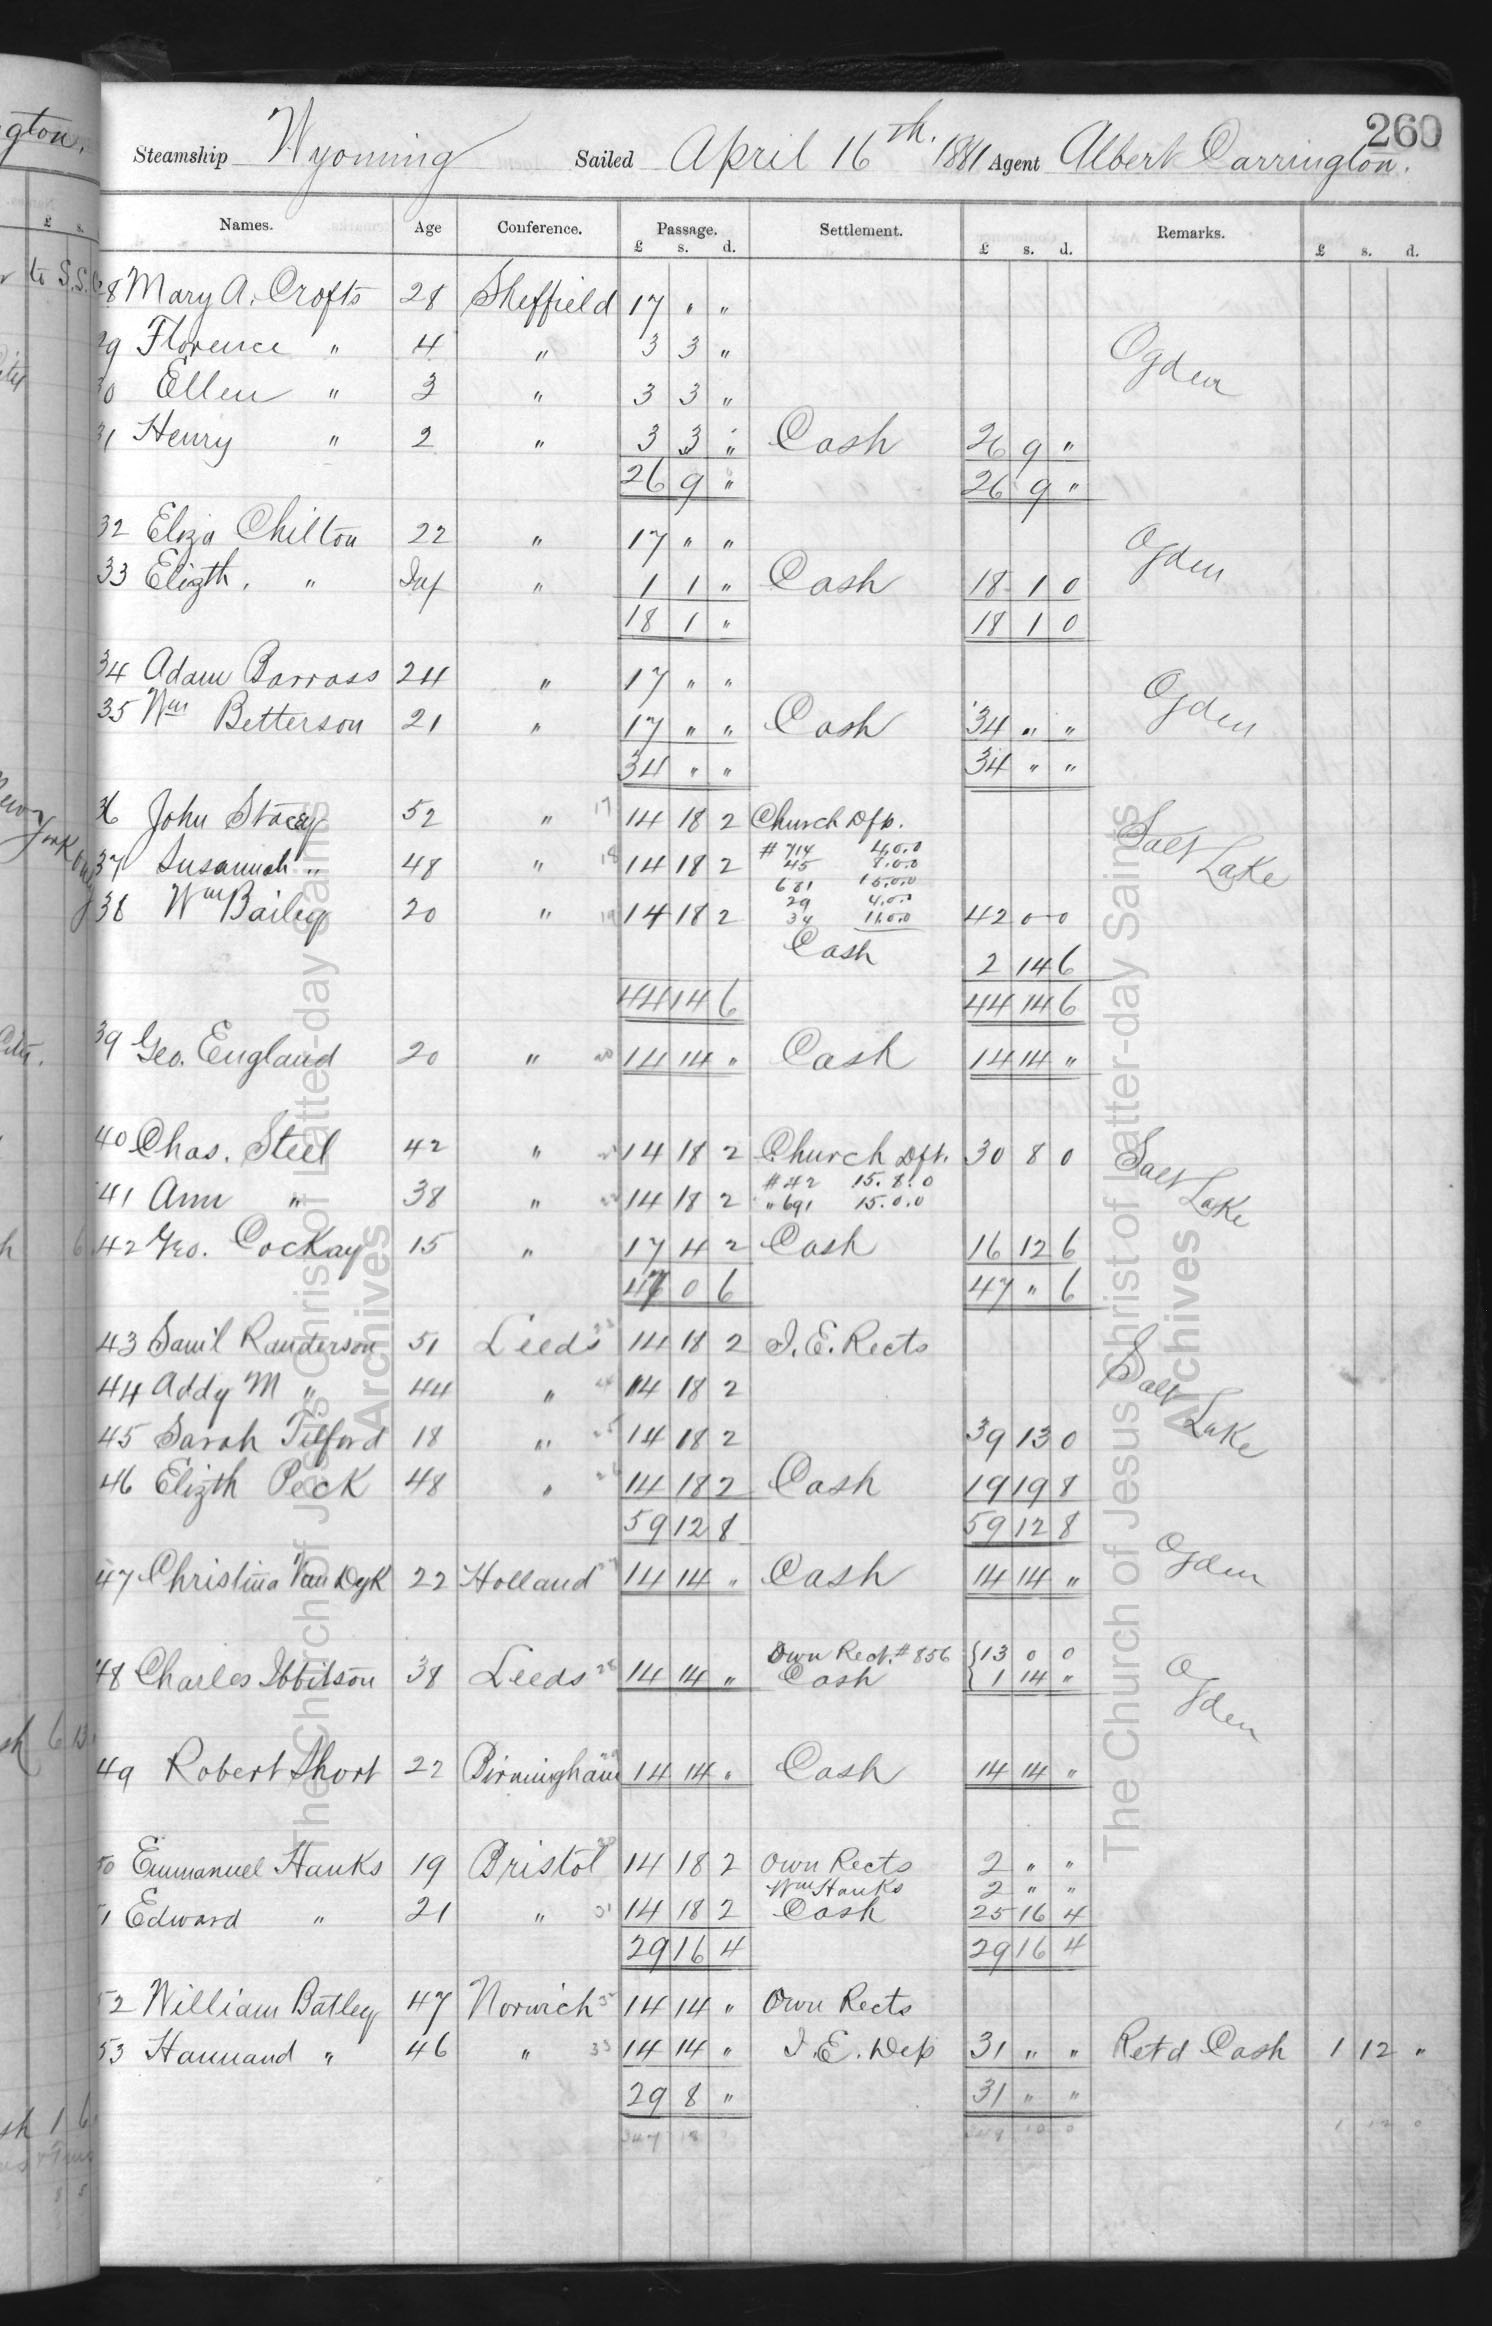 260
Steamship Wyoming Sailed April 16th. 1881 Agent Albert Carrington.
Names. Age Conference. Passage. Settlement. Remarks.
£ s. d. £ s. d. £ s. d.
28 Mary A. Crofts 28 Sheffield 17 " "
29 Florence " 4 " 3 3 " Ogden
30 Ellen " 3 " 3 3 "
31 Henry " 2 " 3 3 " Cash 26 9 "
26 9 " 26 9 "
32 Eliza Chilton 22 " 17 " " Ogden
33 Elizth. " Inf " 1 1 " Cash 18 1 0
18 1 " 18 1 0
34 Adam Barrass 24 " 17 " " Ogden
35 Wm Betterson 21 " 17 " " Cash 34 " "
34 " " 34 " "
36 John Stacey 52 " 17 14 18 2 Church Dfts. Salt Lake
37 Susannah " 48 " 18 14 18 2 # 714 4.0.0
45 8.0.0
681 15.0.0
38 Wm Bailey 20 " 19 14 18 2 29 4.0.0
34 11.0.0 42 0 0
Cash 2 14 6
44 14 6 44 14 6
39 Geo. England 20 " 20 14 14 " Cash 14 14 "
40 Chas. Steel 42 " 14 18 2 Church Dft. 30 8 0 Salt Lake
41 Ann " 38 " 14 18 2 # 42 15.8.0
" 691 15.0.0
42 Geo. Cockay 15 " 17 4 2 Cash 16 12 6
47 0 6 47 " 6
43 Saml Randerson 51 Leeds 14 18 2 I.E. Rects Salt Lake
44 Addy M " 44 " 14 18 2
45 Sarah Tilford 18 " 25 14 18 2 39 13 0
46 Elizth Peck 48 " 26 14 18 2 Cash 19 19 8
59 12 8 59 12 8
47 Christina Van Dyk 22 Holland 27 14 14 " Cash 14 14 " Ogden
Own Rect. # 856 13 0 0
48 Charles Ibbitson 38 Leeds 28 14 14 " Cash 1 14 " Ogden
49 Robert Short 22 Birmingham 14 14 " Cash 14 14 "
50 Emmanuel Hanks 19 Bristol 30 14 18 2 Own Rects 2 " "
Wm Hanks 2 " "
51 Edward " 21 " 31 14 18 2 Cash 25 16 4
29 16 4 29 16 4
52 William Batley 47 Norwich 32 14 14 " Own Rects
53 Hannand " 46 " 33 14 14 " I.E. Dep 31 " " Retd Cash 1 12 "
29 8 " 31 " "
347 18 1 12 0
The Church of Jesus Christ of Latter-day Saints
Archives
The Church of Jesus Christ of Latter-day Saints
Archives